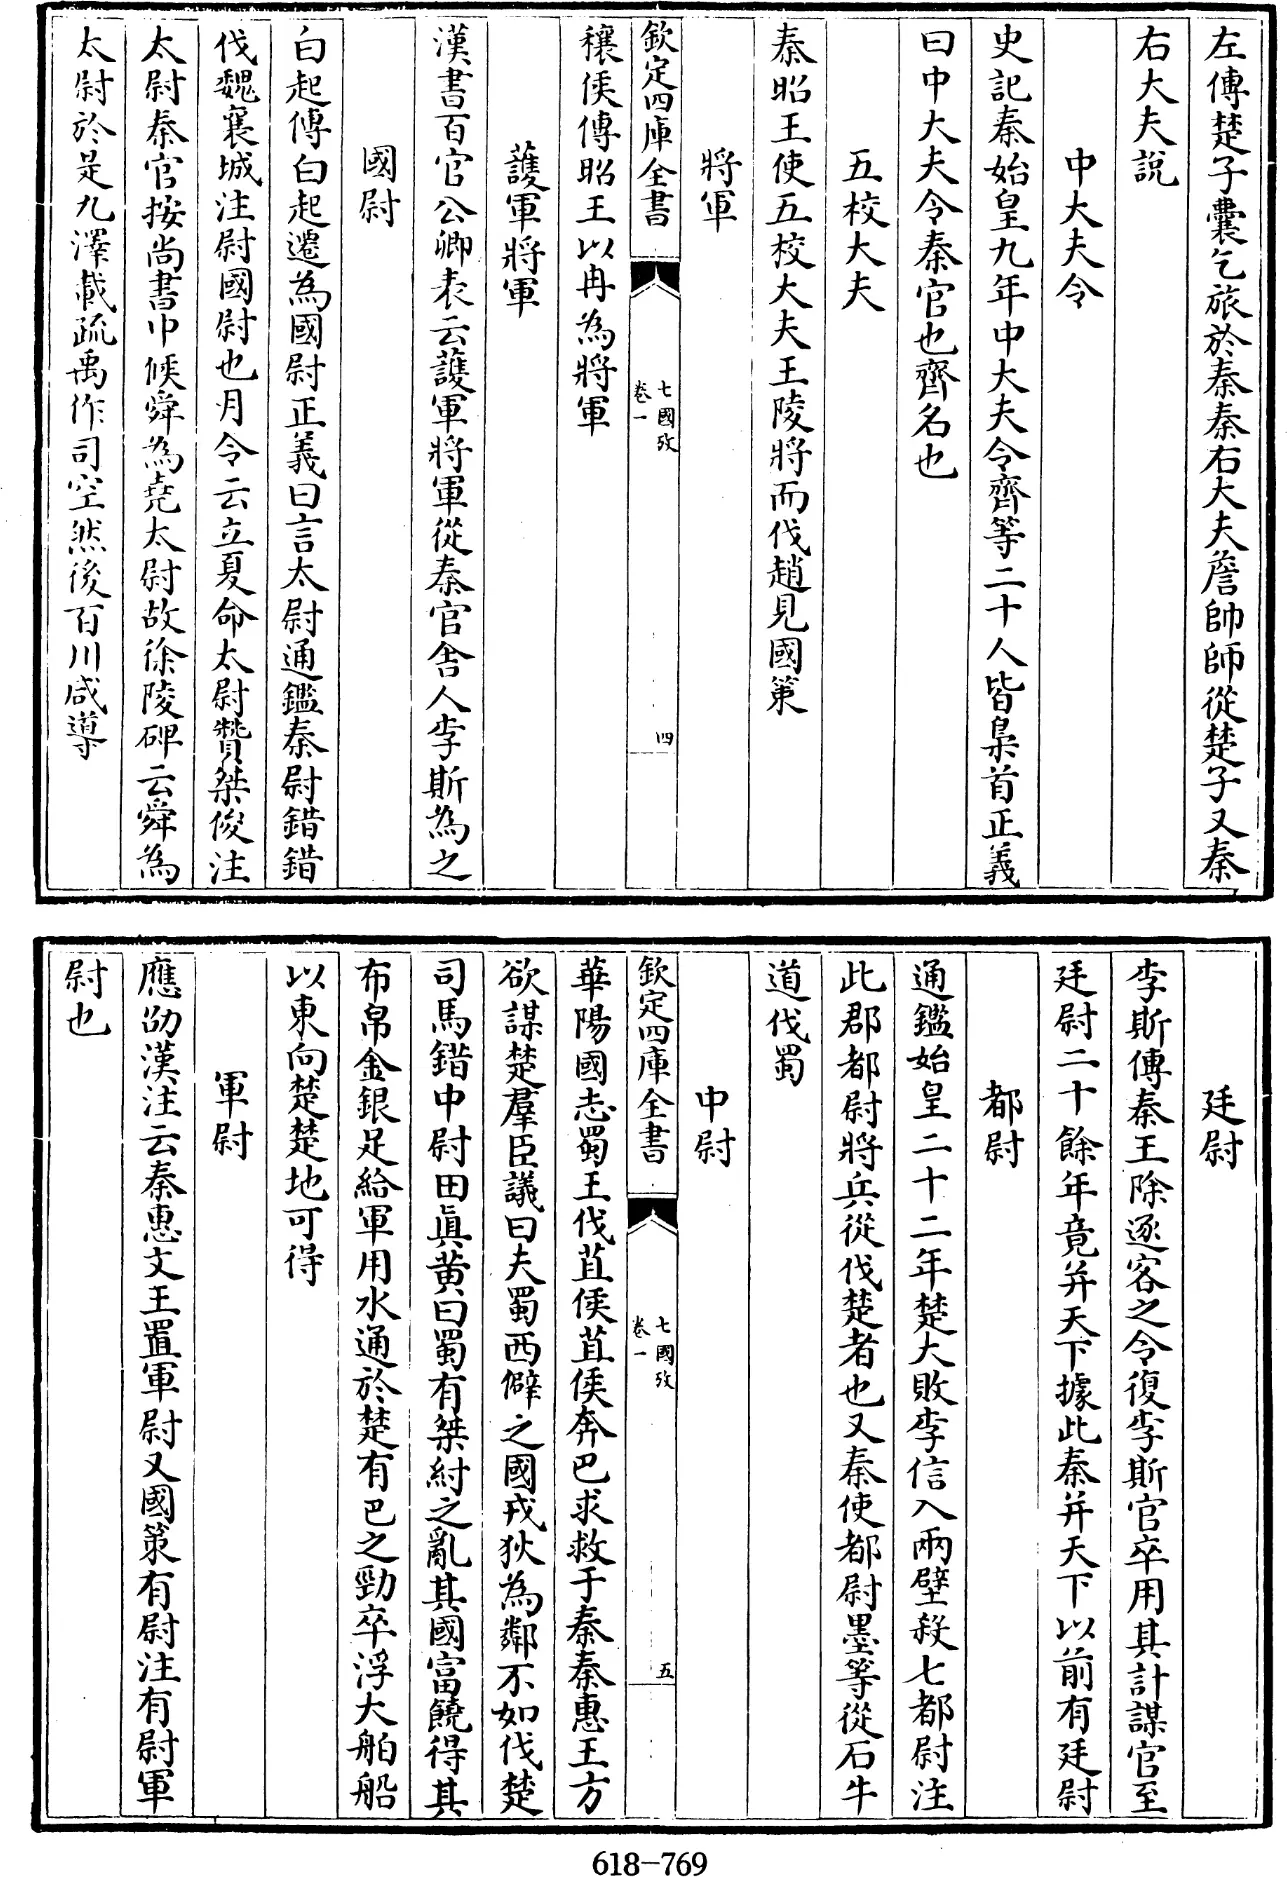 左傳楚子囊乞旅於秦秦右大夫詹帥師從楚子又秦
右大夫說
中大夫令
史記秦始皇九年中大夫令齊等二十人皆梟首正義
曰中大夫令秦官也齊名也
五校大夫
秦昭王使五校大夫王陵將而伐趙見國策
將軍
欽定四庫全書
七國攷
卷一
四
穰侯傳昭王以冉為將軍
護軍將軍
漢書百官公卿表云護軍將軍從秦官舍人李斯為之
國尉
白起傳白起遷為國尉正義曰言太尉通鑑秦尉錯錯
伐魏襄城注尉國尉也月令云立夏命太尉贊桀俊注
太尉秦官按尚書中候舜為堯太尉故徐陵碑云舜為
太尉於是九澤載疏禹作司空然後百川咸導
廷尉
李斯傳秦王除逐客之令復李斯官卒用其計謀官至
廷尉二十餘年竟并天下據此秦并天下以前有廷尉
都尉
通鑑始皇二十二年楚大敗李信入兩壁殺七都尉注
此郡都尉將兵從伐楚者也又秦使都尉墨等從石牛
道伐蜀
中尉
欽定四庫全書
七國攷
卷一
五
華陽國志蜀王伐苴侯苴侯奔巴求救于秦秦惠王方
欲謀楚羣臣議曰夫蜀西僻之國戎狄為鄰不如伐楚
司馬錯中尉田真黃曰蜀有桀紂之亂其國富饒得其
布帛金銀足給軍用水通於楚有巴之勁卒浮大舶船
以東向楚楚地可得
軍尉
應劭漢注云秦惠文王置軍尉又國策有尉注有尉軍
尉也
618-769